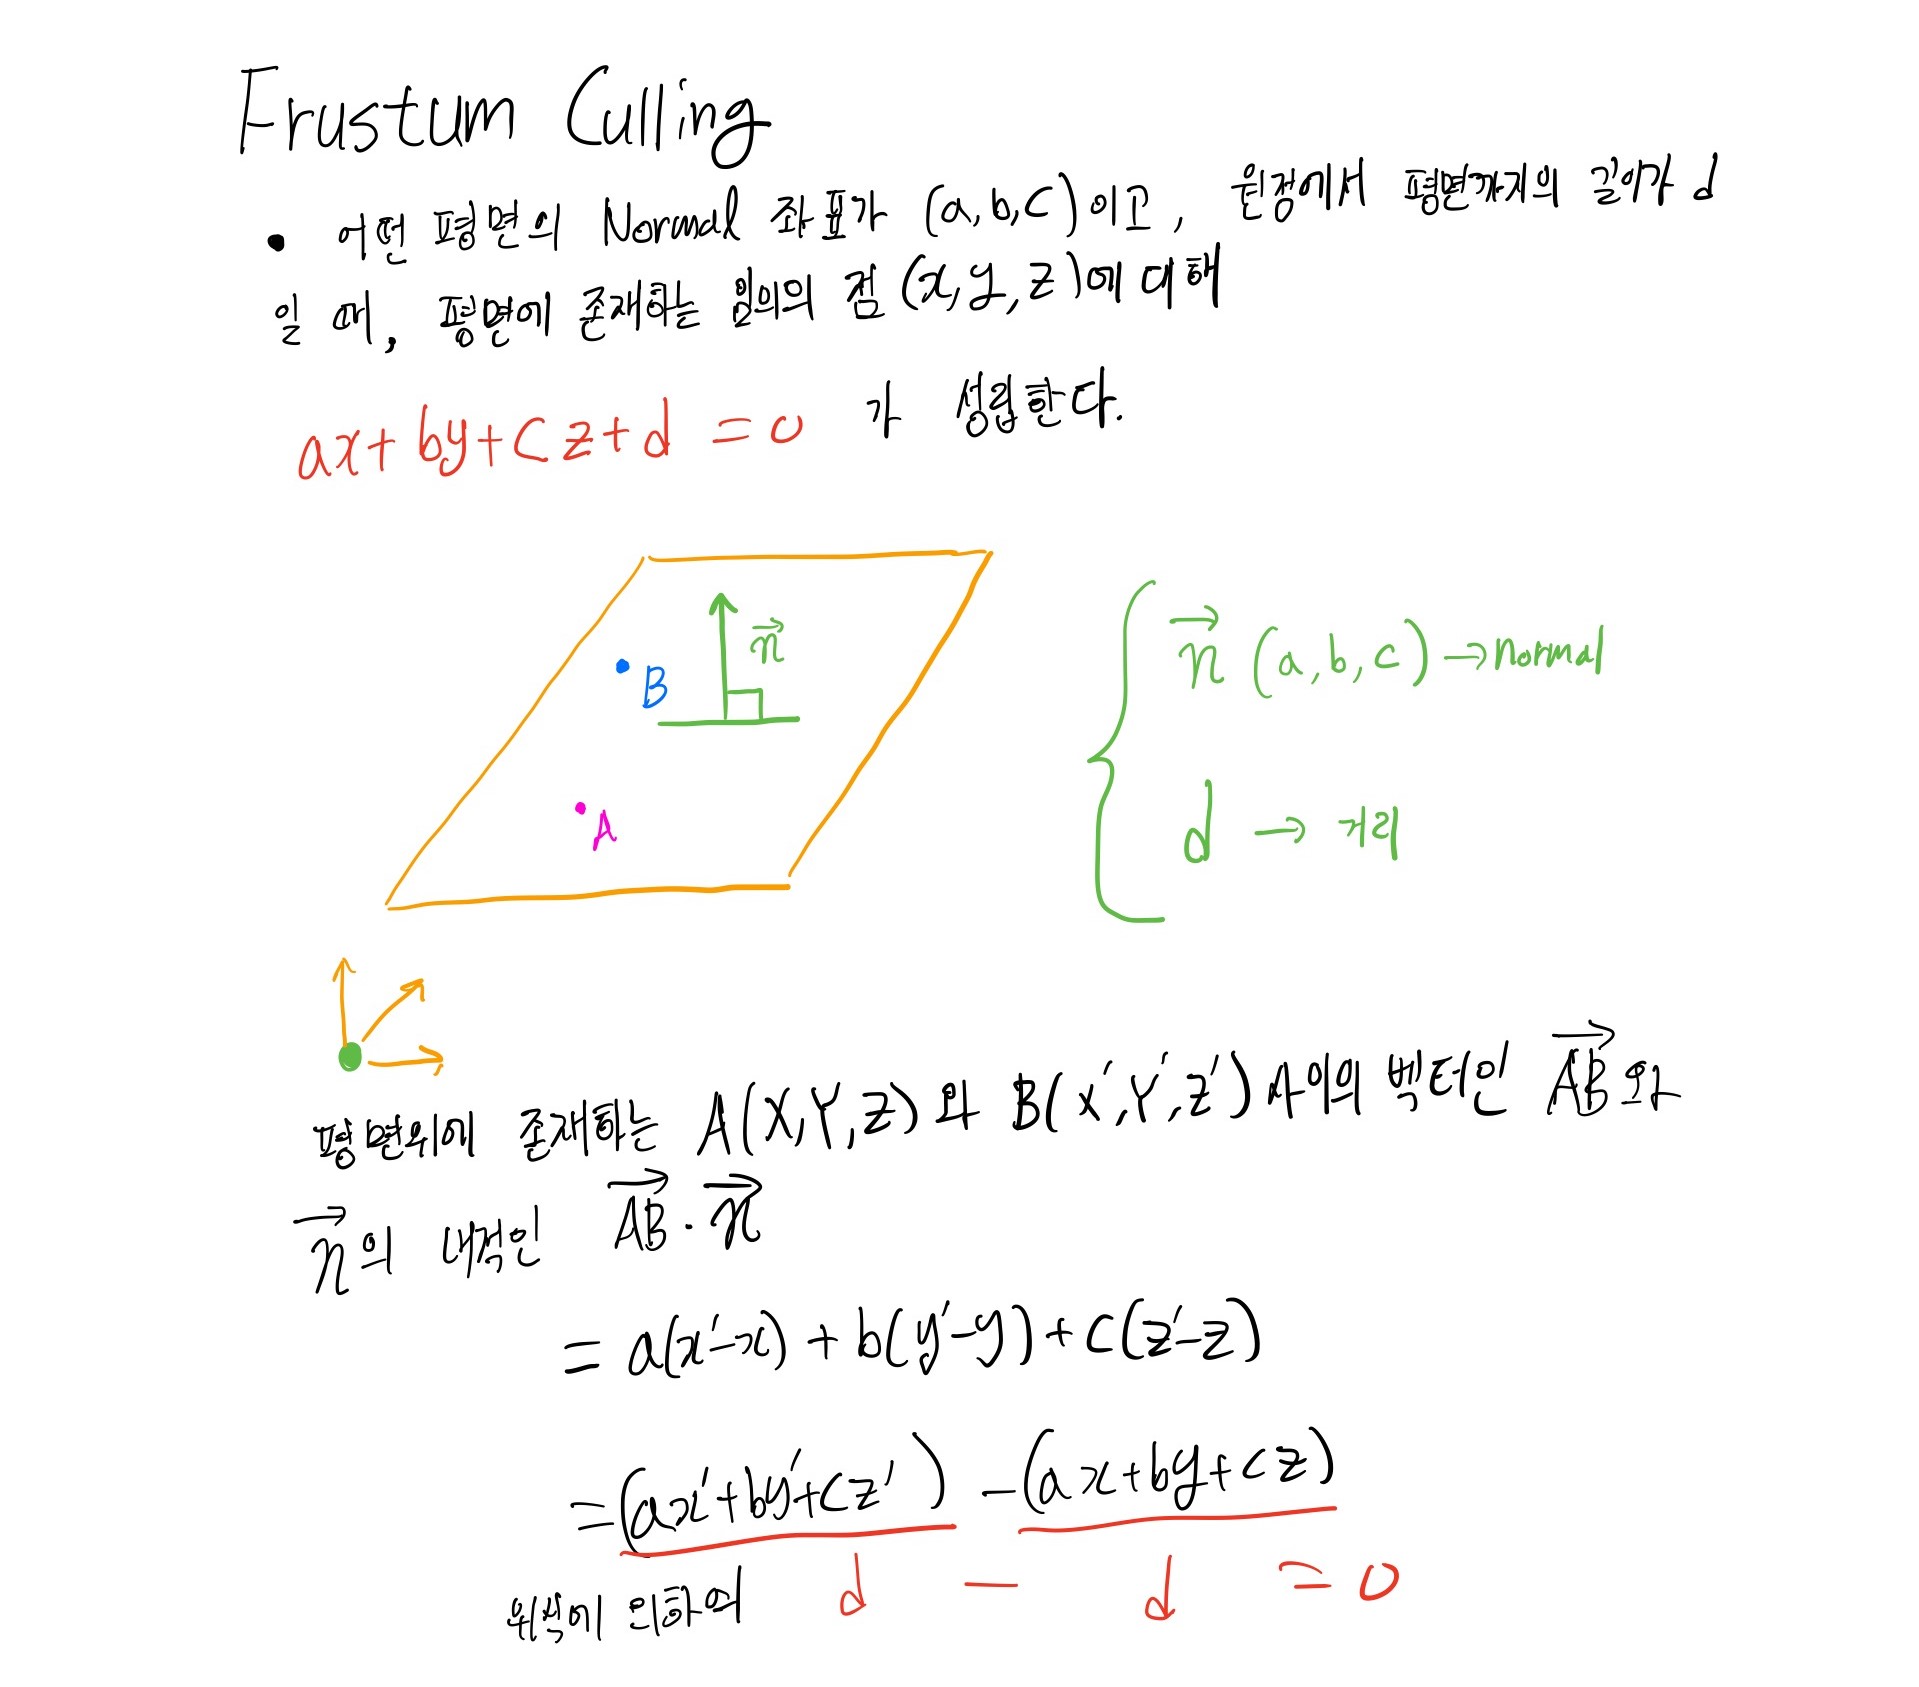 Frustum Culling
• 어떤 평면의 Normal 좌표가 (a,b,c)이고, 원점에서 평면까지의 길이가 d
일 때, 평면에 존재하는 임의의 점 (x,y,z)에 대해
ax+by+cz+d = 0 가 성립한다.
n⃗
B
A
n⃗ (a,b,c) → normal
d → 거리
평면위에 존재하는 A(X,Y,Z)와 B(X',Y',Z') 사이의 벡터인 AB⃗와
n⃗의 내적인 AB⃗·n⃗
= a(x'-x) + b(y'-y) + c(z'-z)
= (ax'+by'+cz') - (ax+by+cz)
위식에 의하여 d - d = 0